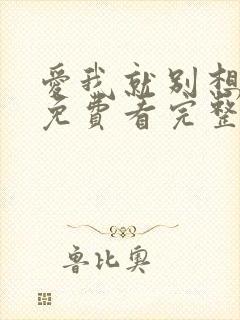 愛我就别想
免費看完整
魯比奥